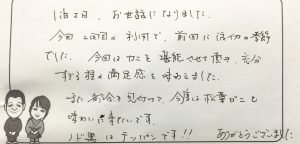 1泊2日、お世話になりました。
今回二回目の利用で、前回に
の季節
でした。今回はカニを堪能させて頂き、充分
すぎる程の満足感を味わえました。
また都合を見付けて、今度は松葉がにも
味わいに来たいです。
ノド黒はテッパンです!!
ありがとうございました